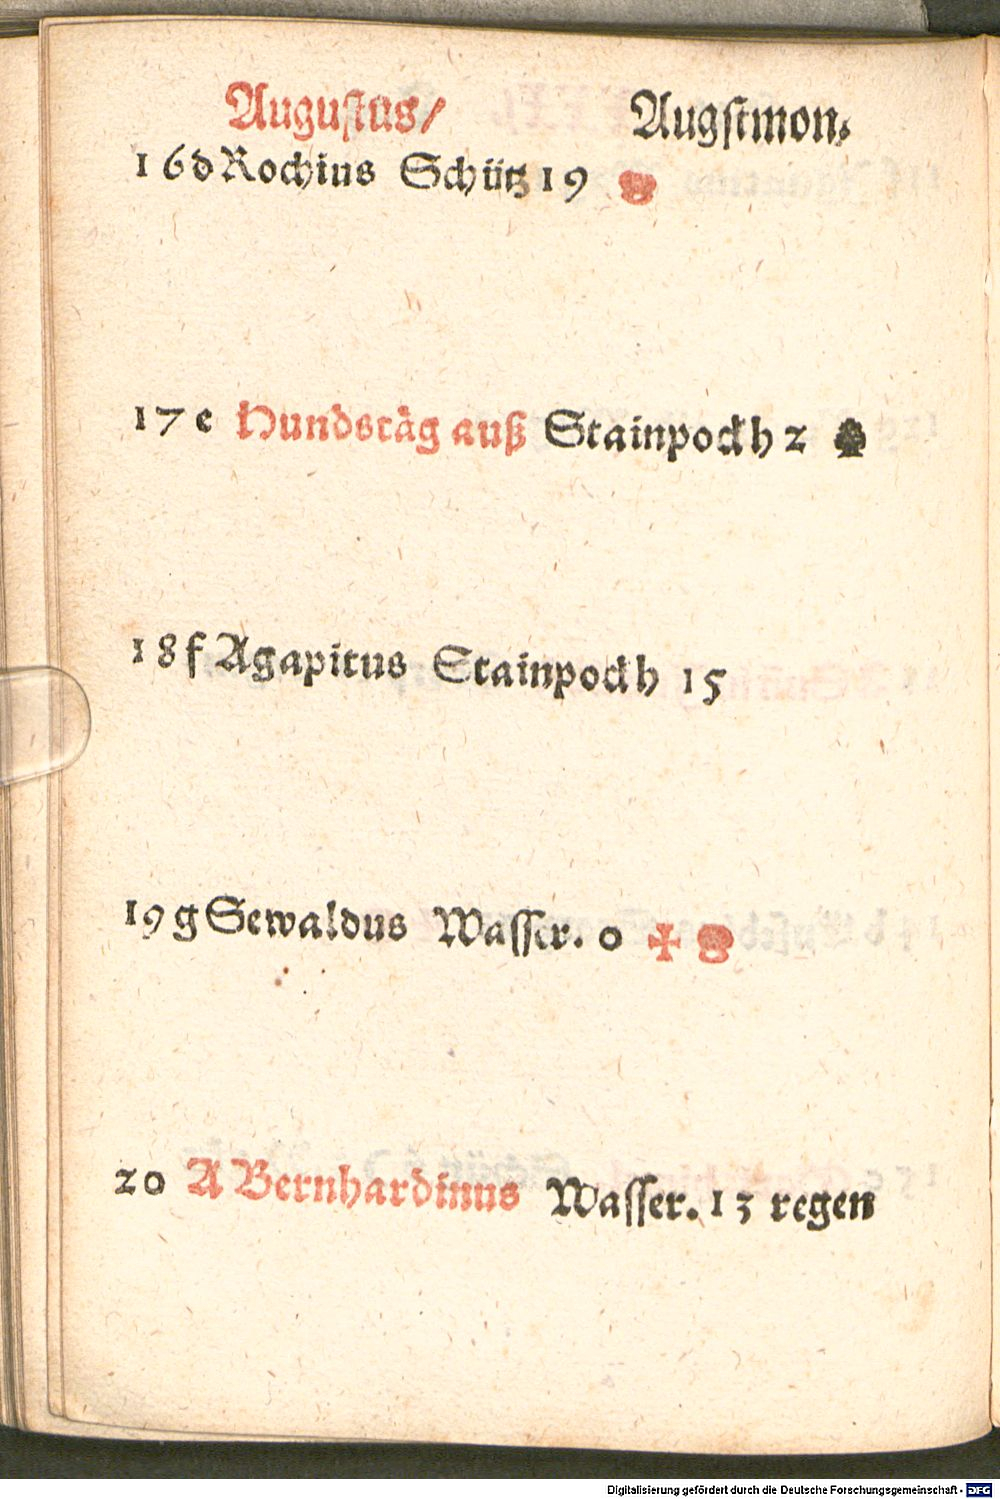 Auguſtus/ Augſtmon.
16 d Rochius Schütz 19
17 e Hundstäg auß Stainpockh 2
18 f Agapitus Stainpockh 15
19 g Sewaldus Waſſer. 0 ✠
20 A Bernhardinus Waſſer. 13 regen
Digitalisierung gefördert durch die Deutsche Forschungsgemeinschaft - DFG